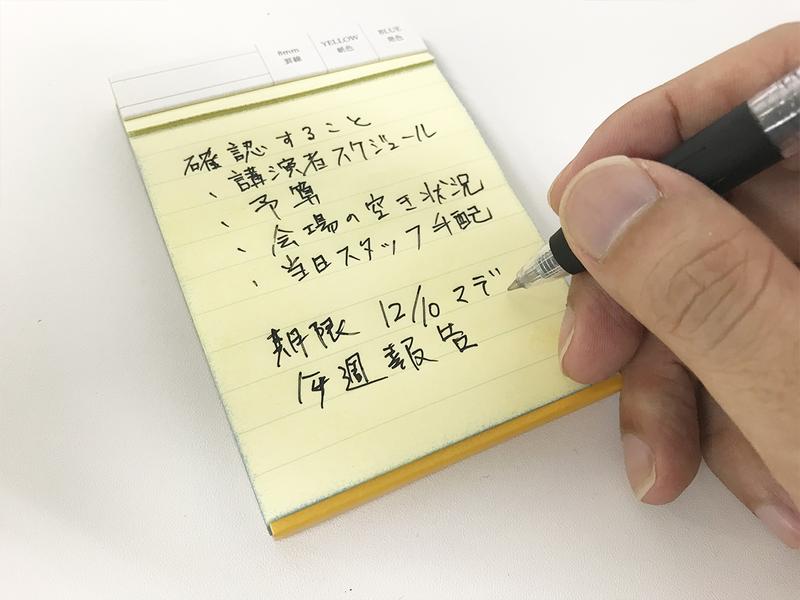 8mm 罫線
YELLOW 紙色
BLUE 罫色
確認すること
、講演者スケジュール
、予算
、会場の空き状況
、当日スタッフ手配
期限 12/10マデ
毎週報告